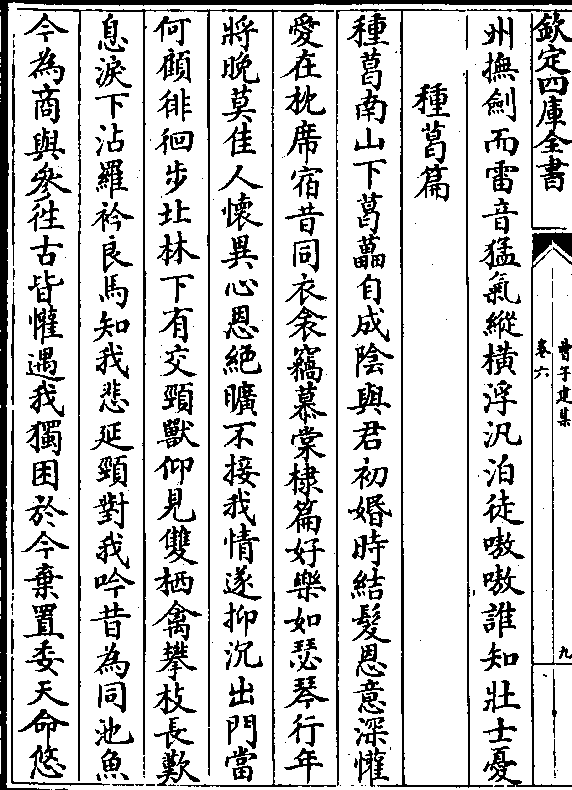 欽定四庫全書
曹子建集
卷六
九
州撫劍而雷音猛氣縱橫浮汎泊徒嗷嗷誰知壯士憂
種葛篇
種葛南山下葛藟自成陰與君初婚時結髮恩意深懽
愛在枕席宿昔同衣衾竊慕棠棣篇好樂如瑟琴行年
將晩莫佳人懷異心恩絶曠不接我情遂抑沉出門當
何顧徘徊步北林下有交頸獸仰見雙栖禽攀枝長歎
息淚下沾羅衿良馬知我悲延頸對我吟昔為同池魚
今為商與參徃古皆懽遇我獨困於今棄置委天命悠